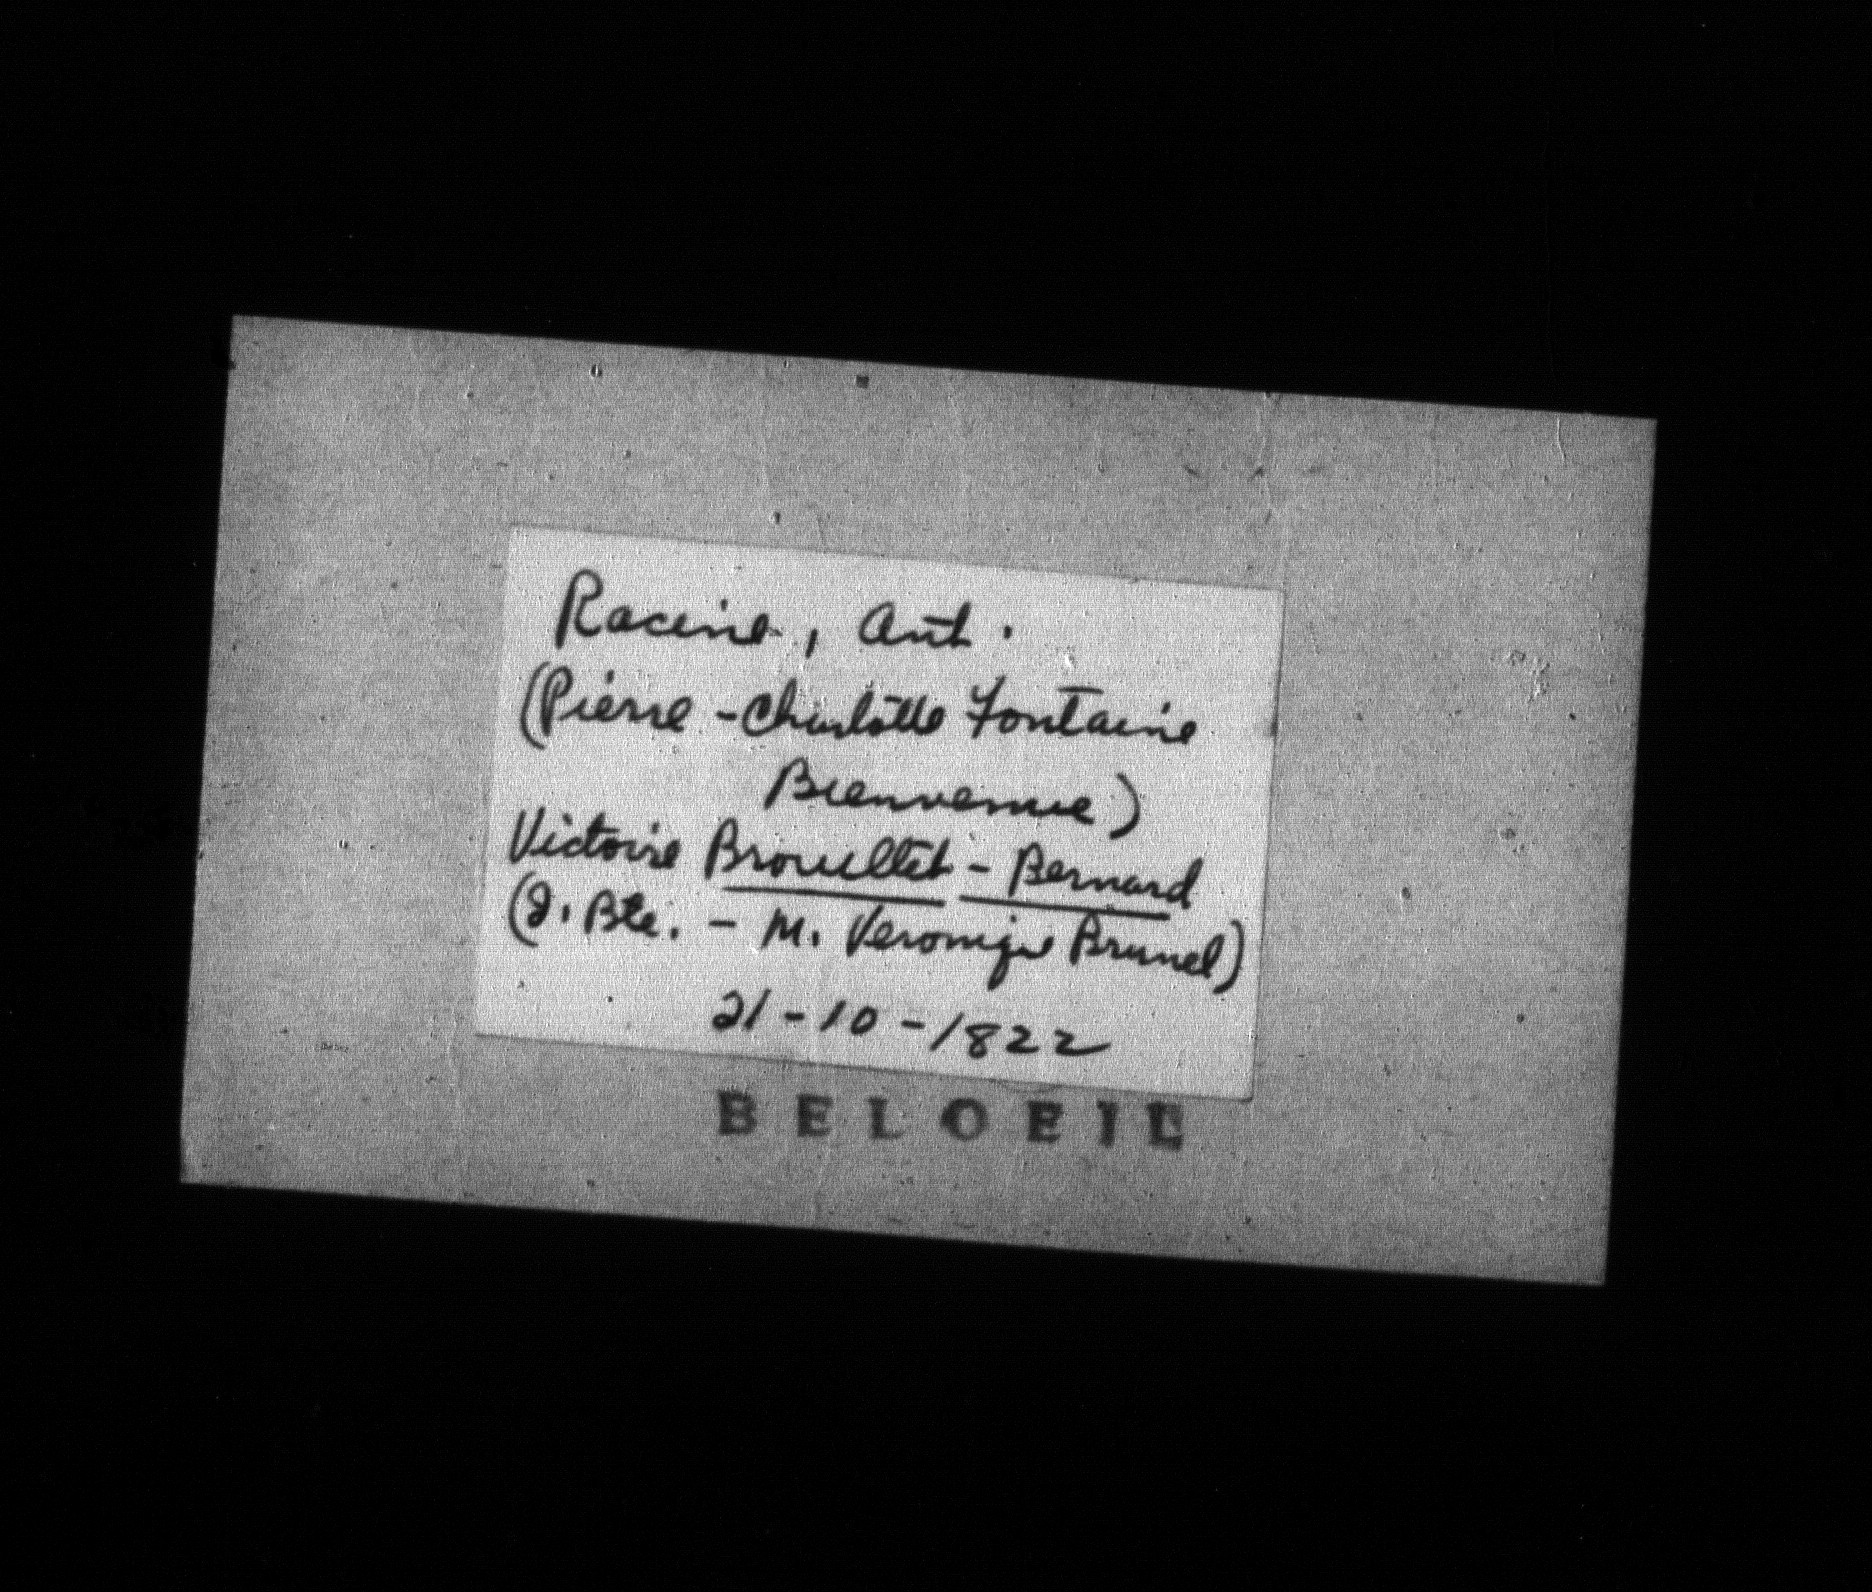 Racine, Ant.
(Pierre - Charlotte Fontaine
Bienvenue)
Victoire Brouillet - Bernard
(J. Bte. - M. Veronique Brunel)
21-10-1822
BELOEIL